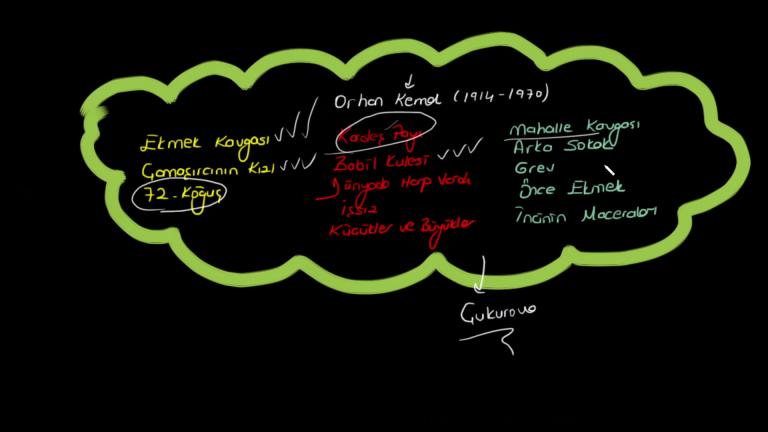 Orhan Kemal (1914-1970)
Ekmek Kavgası
Çamaşırcının Kızı
72. Koğuş
Kardeş Payı
Babil Kulesi
Dünyada Harp Vardı
İşsiz
Küçükler ve Büyükler
Mahalle Kavgası
Arka Sokak
Grev
Önce Ekmek
İncinin Maceraları
Çukurova